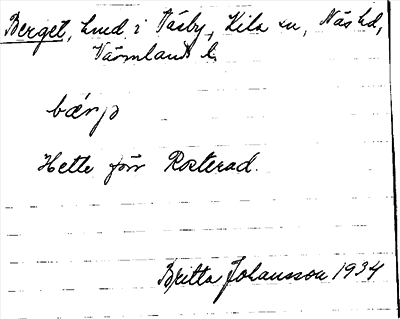 Berget, hmd i Väsby, Kila sn, Näs hd,
Värmlands l.
bærjə
Hette förr Rosterad.
Britta Johansson 1934